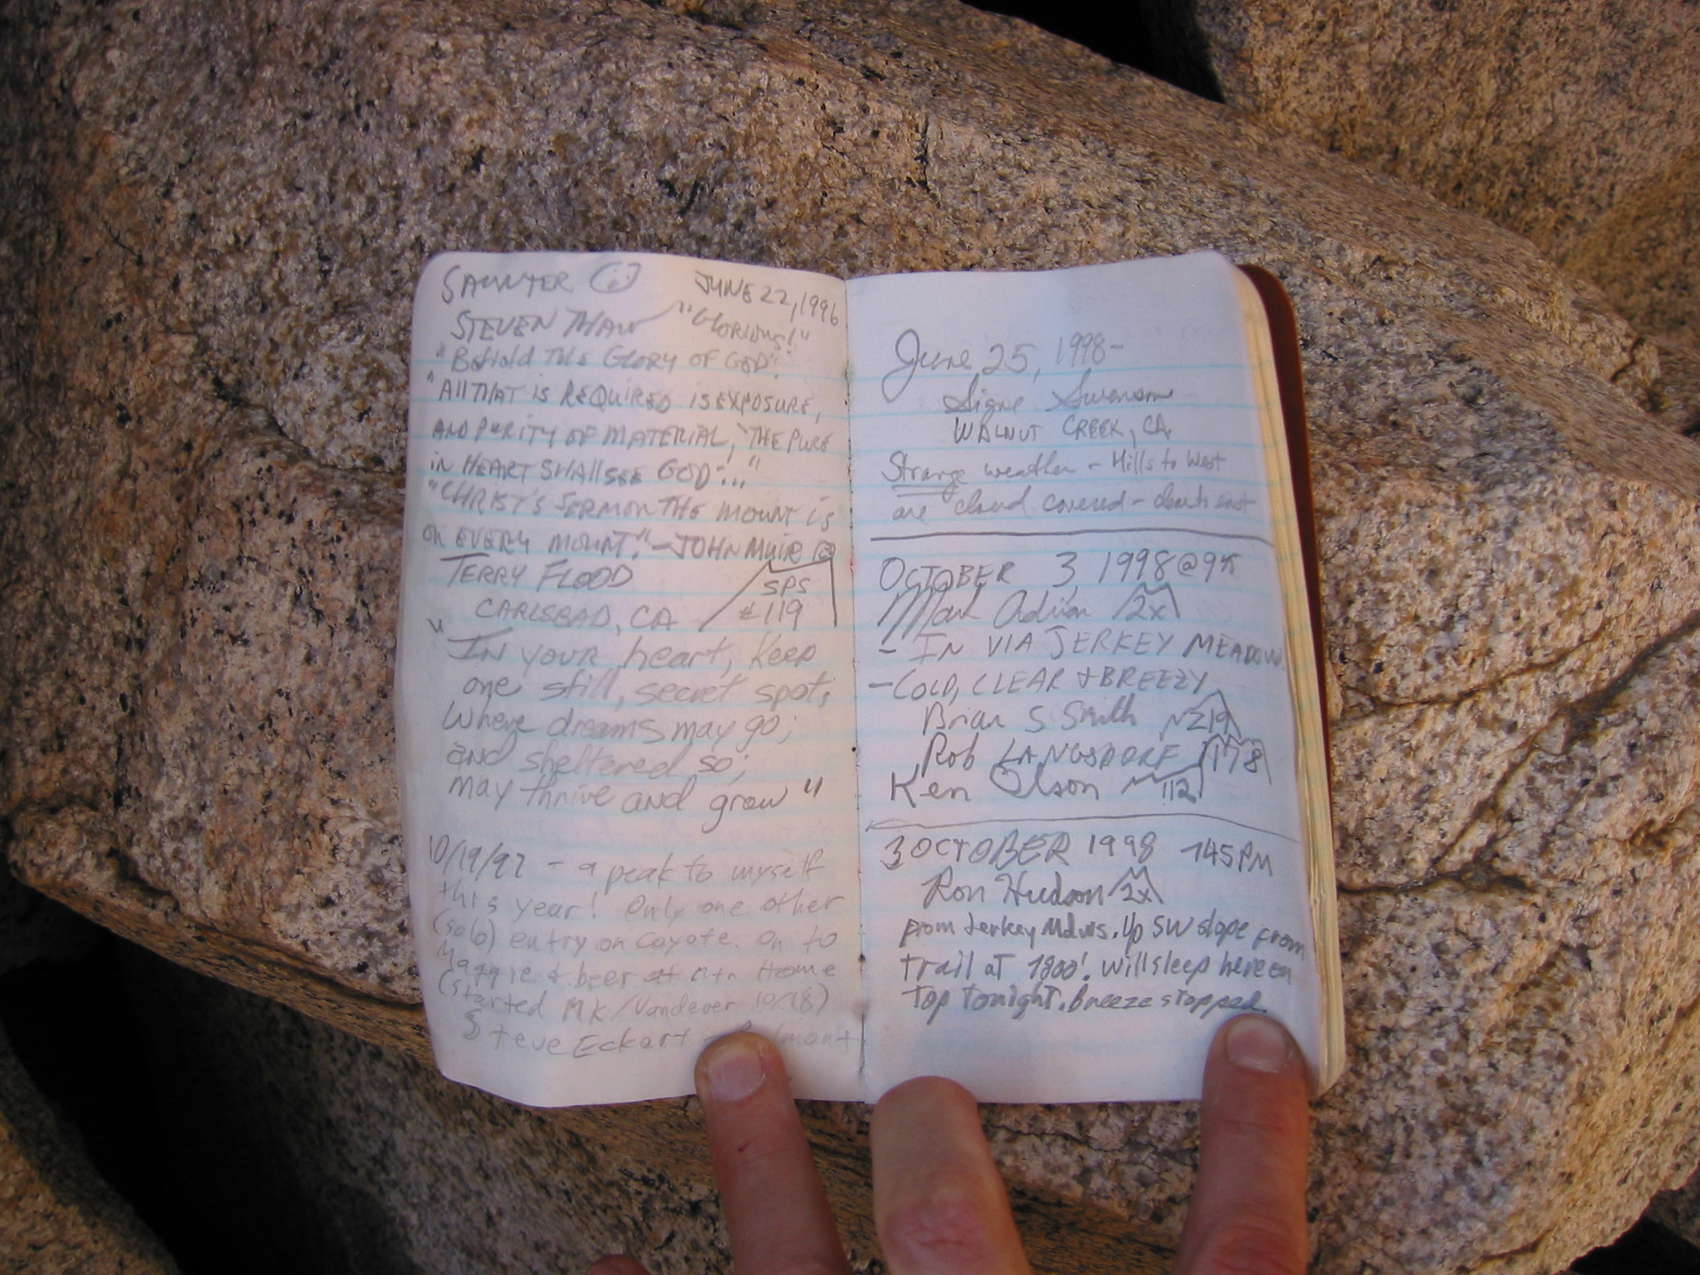 SAUNTER :) JUNE 22, 1996
STEVEN THAW "GLORIOUS!"
"Behold THE GLORY OF GOD".
"All THAT is REQUIRED is EXPOSURE,
AND PURITY OF MATERIAL, 'THE PURE
iN HEART SHAll SEE GOD'..."
"CHRIST'S SERMON THE MOUNT is
ON EVERY MOUNT." - JOHN MUIR
TERRY FLOOD SPS
CARLSBAD, CA #119
"IN your heart, keep
one still, secret spot;
Where dreams may go;
and sheltered so;
may thrive and grow"
10/19/97 - a peak to myself
this year! Only one other
(solo) entry on Coyote. On to
Maggie & beer at Mtn Home
(started MK/Vandever 10/18)
Steve Eckert
June 25, 1998-
Signe Swenson
WALNUT CREEK, CA.
Strange weather - Hills to West
are cloud covered -
OCTOBER 3 1998 @ 9
Mark Adrian 2x
- IN VIA JERKEY MEADOW
- COLD, CLEAR & BREEZY
Brian S Smith 219
Rob LANGSDORF 178
Ken Olson 112
3 OCTOBER 1998 145 PM
Ron Hudson 2x
from Jerkey Mdws. Up SW slope from
trail at . Will sleep here on
top tonight. breeze stopped.